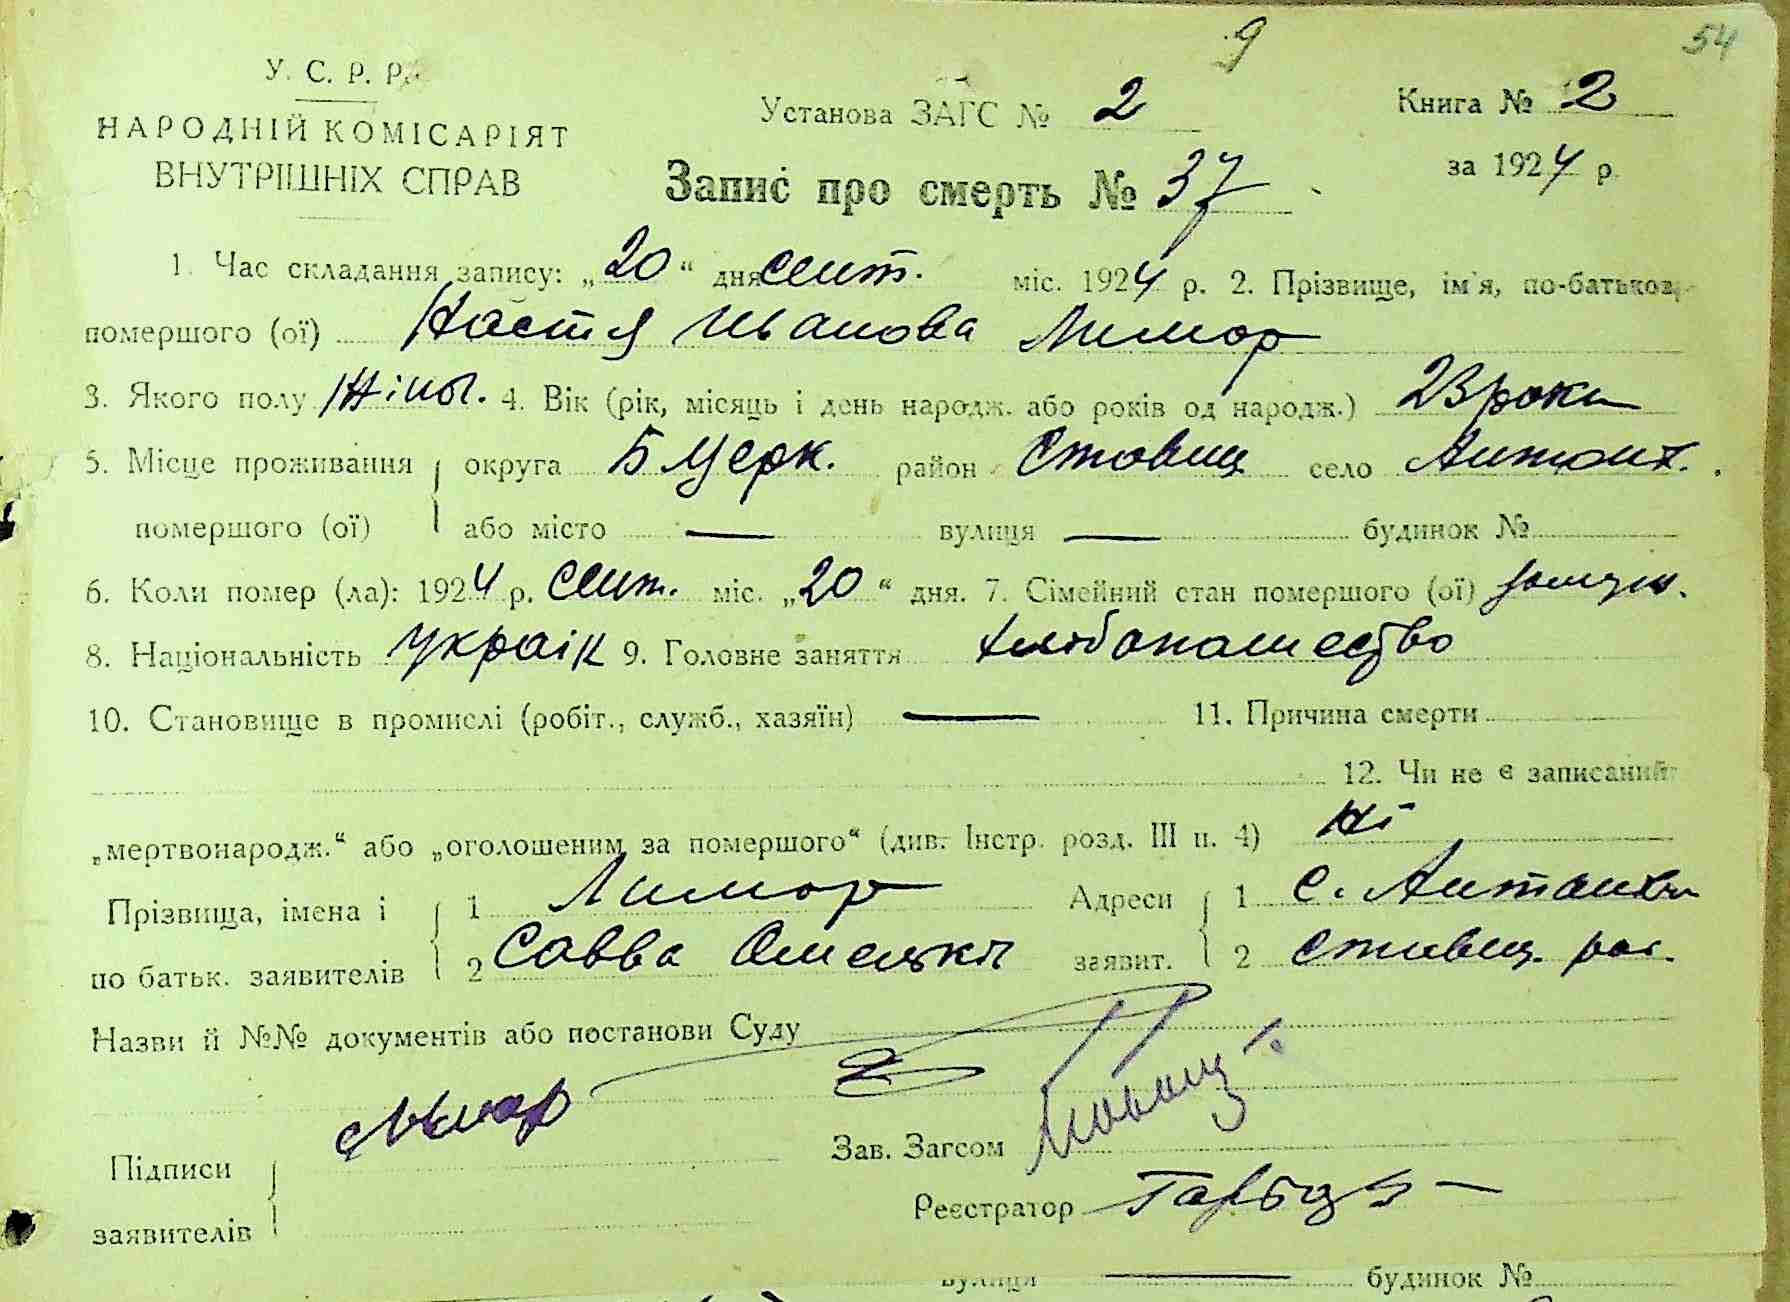 9 54
У. С. Р. Р.
НАРОДНІЙ КОМІСАРІЯТ
ВНУТРІШНІХ СПРАВ
Установа ЗАГС № 2
Книга № 2
за 1924 р.
Запис про смерть № 37
1. Час складання запису: „20“ дня сент. міс. 1924 р. 2. Прізвище, ім'я, по-батькові
помершого (ої) Настя Иванова Лимор
3. Якого полу жіноч. 4. Вік (рік, місяць і день народж. або років од народж.) 23 роки
5. Місце проживання округа Б Церк. район Ставищ село Антон.
помершого (ої) або місто — вулиця — будинок №
6. Коли помер (ла): 1924 р. сент. міс. „20“ дня. 7. Сімейний стан помершого (ої) замуж.
8. Національність україн 9. Головне заняття хлібопашество
10. Становище в промислі (робіт., служб., хазяїн) — 11. Причина смерти
12. Чи не є записаний
„мертвонародж.“ або „оголошеним за помершого“ (див. Інстр. розд. III п. 4) ні
Прізвища, імена і 1 Лимор Адреси 1 с. Антонівка
по батьк. заявителів 2 Савва Омелькович заявит. 2 Ставищ. рай.
Назви й №№ документів або постанови Суду
Лымар
Підписи Зав. Загсом
заявителів Реєстратор
вулиця — будинок №